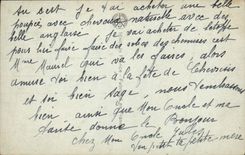 on sert je t'ai acheter une belle
poupée avec chevelure naturelle avec des
belle anglaise je vai acheter de l'étoffe
pour lui faire faire des robes des chemises c'est
Mme Maurel qui va les faires, alors
amuse toi bien à la fête de
et soi bien sage, nous t'embrassons
bien, ainsi que Mon Oncle et ma
tante donne le Bonjour
chez Mon Oncle Jules
ton petite mère